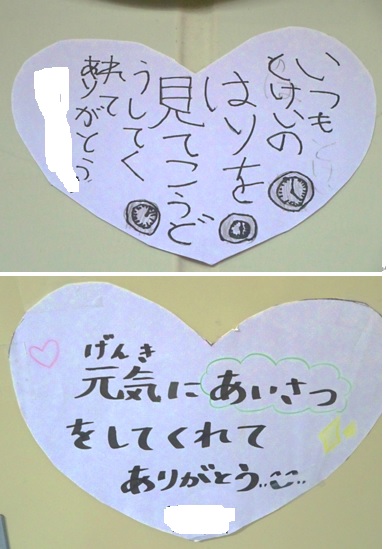 いつも
とけいの
はりを
見てこうど
うしてく
れて
ありがとう
げんき
元気にあいさつ
をしてくれて
ありがとう